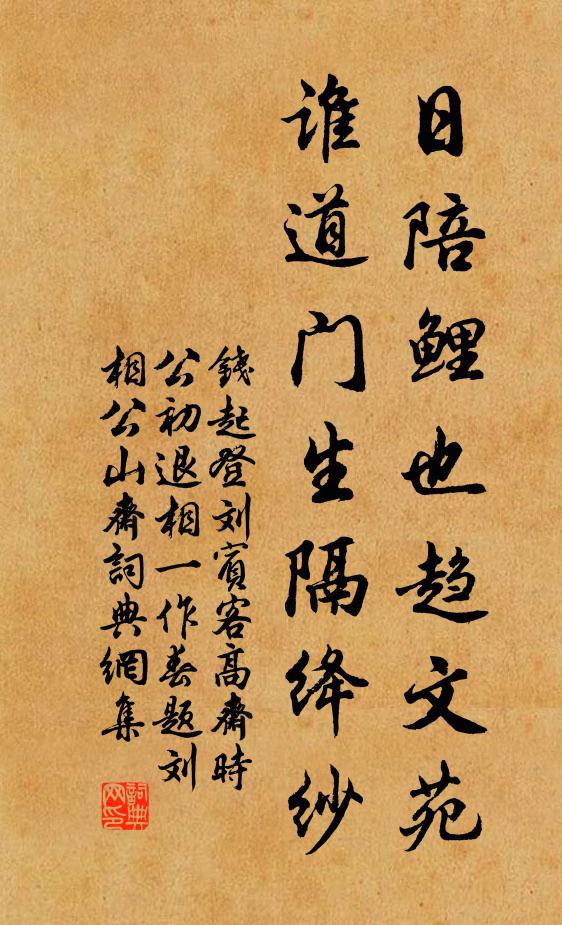 日陪鲤也趋文苑
谁道门生隔绛纱
錢起登刘賓客高齋時
公初退相一作春題刘
相公山齋詞典網集
詞典网印